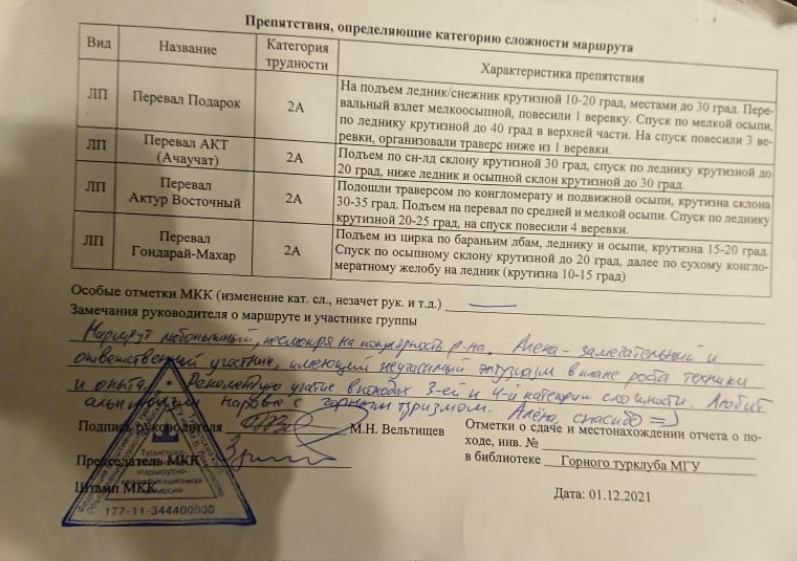 Препятствия, определяющие категорию сложности маршрута
Вид
Название
Категория
трудности
Характеристика препятствия
ЛП
Перевал Подарок
2А
На подъем ледник/снежник крутизной 10-20 град, местами до 30 град. Пере-
вальный взлет мелкоосыпной, повесили 1 веревку. Спуск по мелкой осыпи,
по леднику крутизной до 40 град в верхней части. На спуск повесили 3 ве-
ревки, организовали траверс ниже из 1 веревки.
ЛП
Перевал АКТ
(Ачаучат)
2А
Подъем по сн-лд склону крутизной 30 град, спуск по леднику крутизной до
20 град, ниже ледник и осыпной склон крутизной до 30 град.
ЛП
Перевал
Актур Восточный
2А
Подошли траверсом по конгломерату и подвижной осыпи, крутизна склона
30-35 град. Подъем на перевал по средней и мелкой осыпи. Спуск по леднику
крутизной 20-25 град, на спуск повесили 4 веревки.
ЛП
Перевал
Гондарай-Махар
2А
Подъем из цирка по бараньим лбам, леднику и осыпи, крутизна 15-20 град.
Спуск по осыпному склону крутизной до 20 град, далее по сухому конгло-
мератному желобу на ледник (крутизна 10-15 град)
Особые отметки МКК (изменение кат. сл., незачет рук. и т.д.)
Замечания руководителя о маршруте и участнике группы
Маршрут любопытный, несмотря на популярность р-на. Алена - замечательный и
ответственный участник, имеющий неугасимый энтузиазм в плане роста техники
и опыта. Рекомендую участие в походах 3-ей и 4-й категории сложности. Любит
альпинизм наравне с горным туризмом. Алёна, спасибо =)
Подпись руководителя
М.Н. Вельтищев
Председатель МКК
Штамп МКК
Отметки о сдаче и местонахождении отчета о по-
ходе, инв. №
в библиотеке Горного турклуба МГУ
Дата: 01.12.2021
Туристская
маршрутно-
квалификационная
комиссия
177-11-344400030